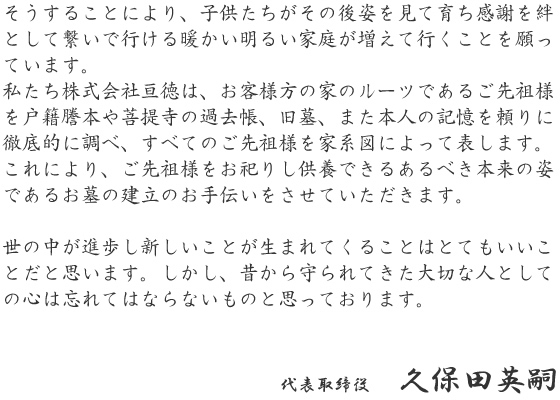 そうすることにより、子供たちがその後姿を見て育ち感謝を絆
として繋いで行ける暖かい明るい家庭が増えて行くことを願っ
ています。
私たち株式会社亘徳は、お客様方の家のルーツであるご先祖様
を戸籍謄本や菩提寺の過去帳、旧墓、また本人の記憶を頼りに
徹底的に調べ、すべてのご先祖様を家系図によって表します。
これにより、ご先祖様をお祀りし供養できるあるべき本来の姿
であるお墓の建立のお手伝いをさせていただきます。
世の中が進歩し新しいことが生まれてくることはとてもいいこ
とだと思います。しかし、昔から守られてきた大切な人として
の心は忘れてはならないものと思っております。
代表取締役 久保田英嗣